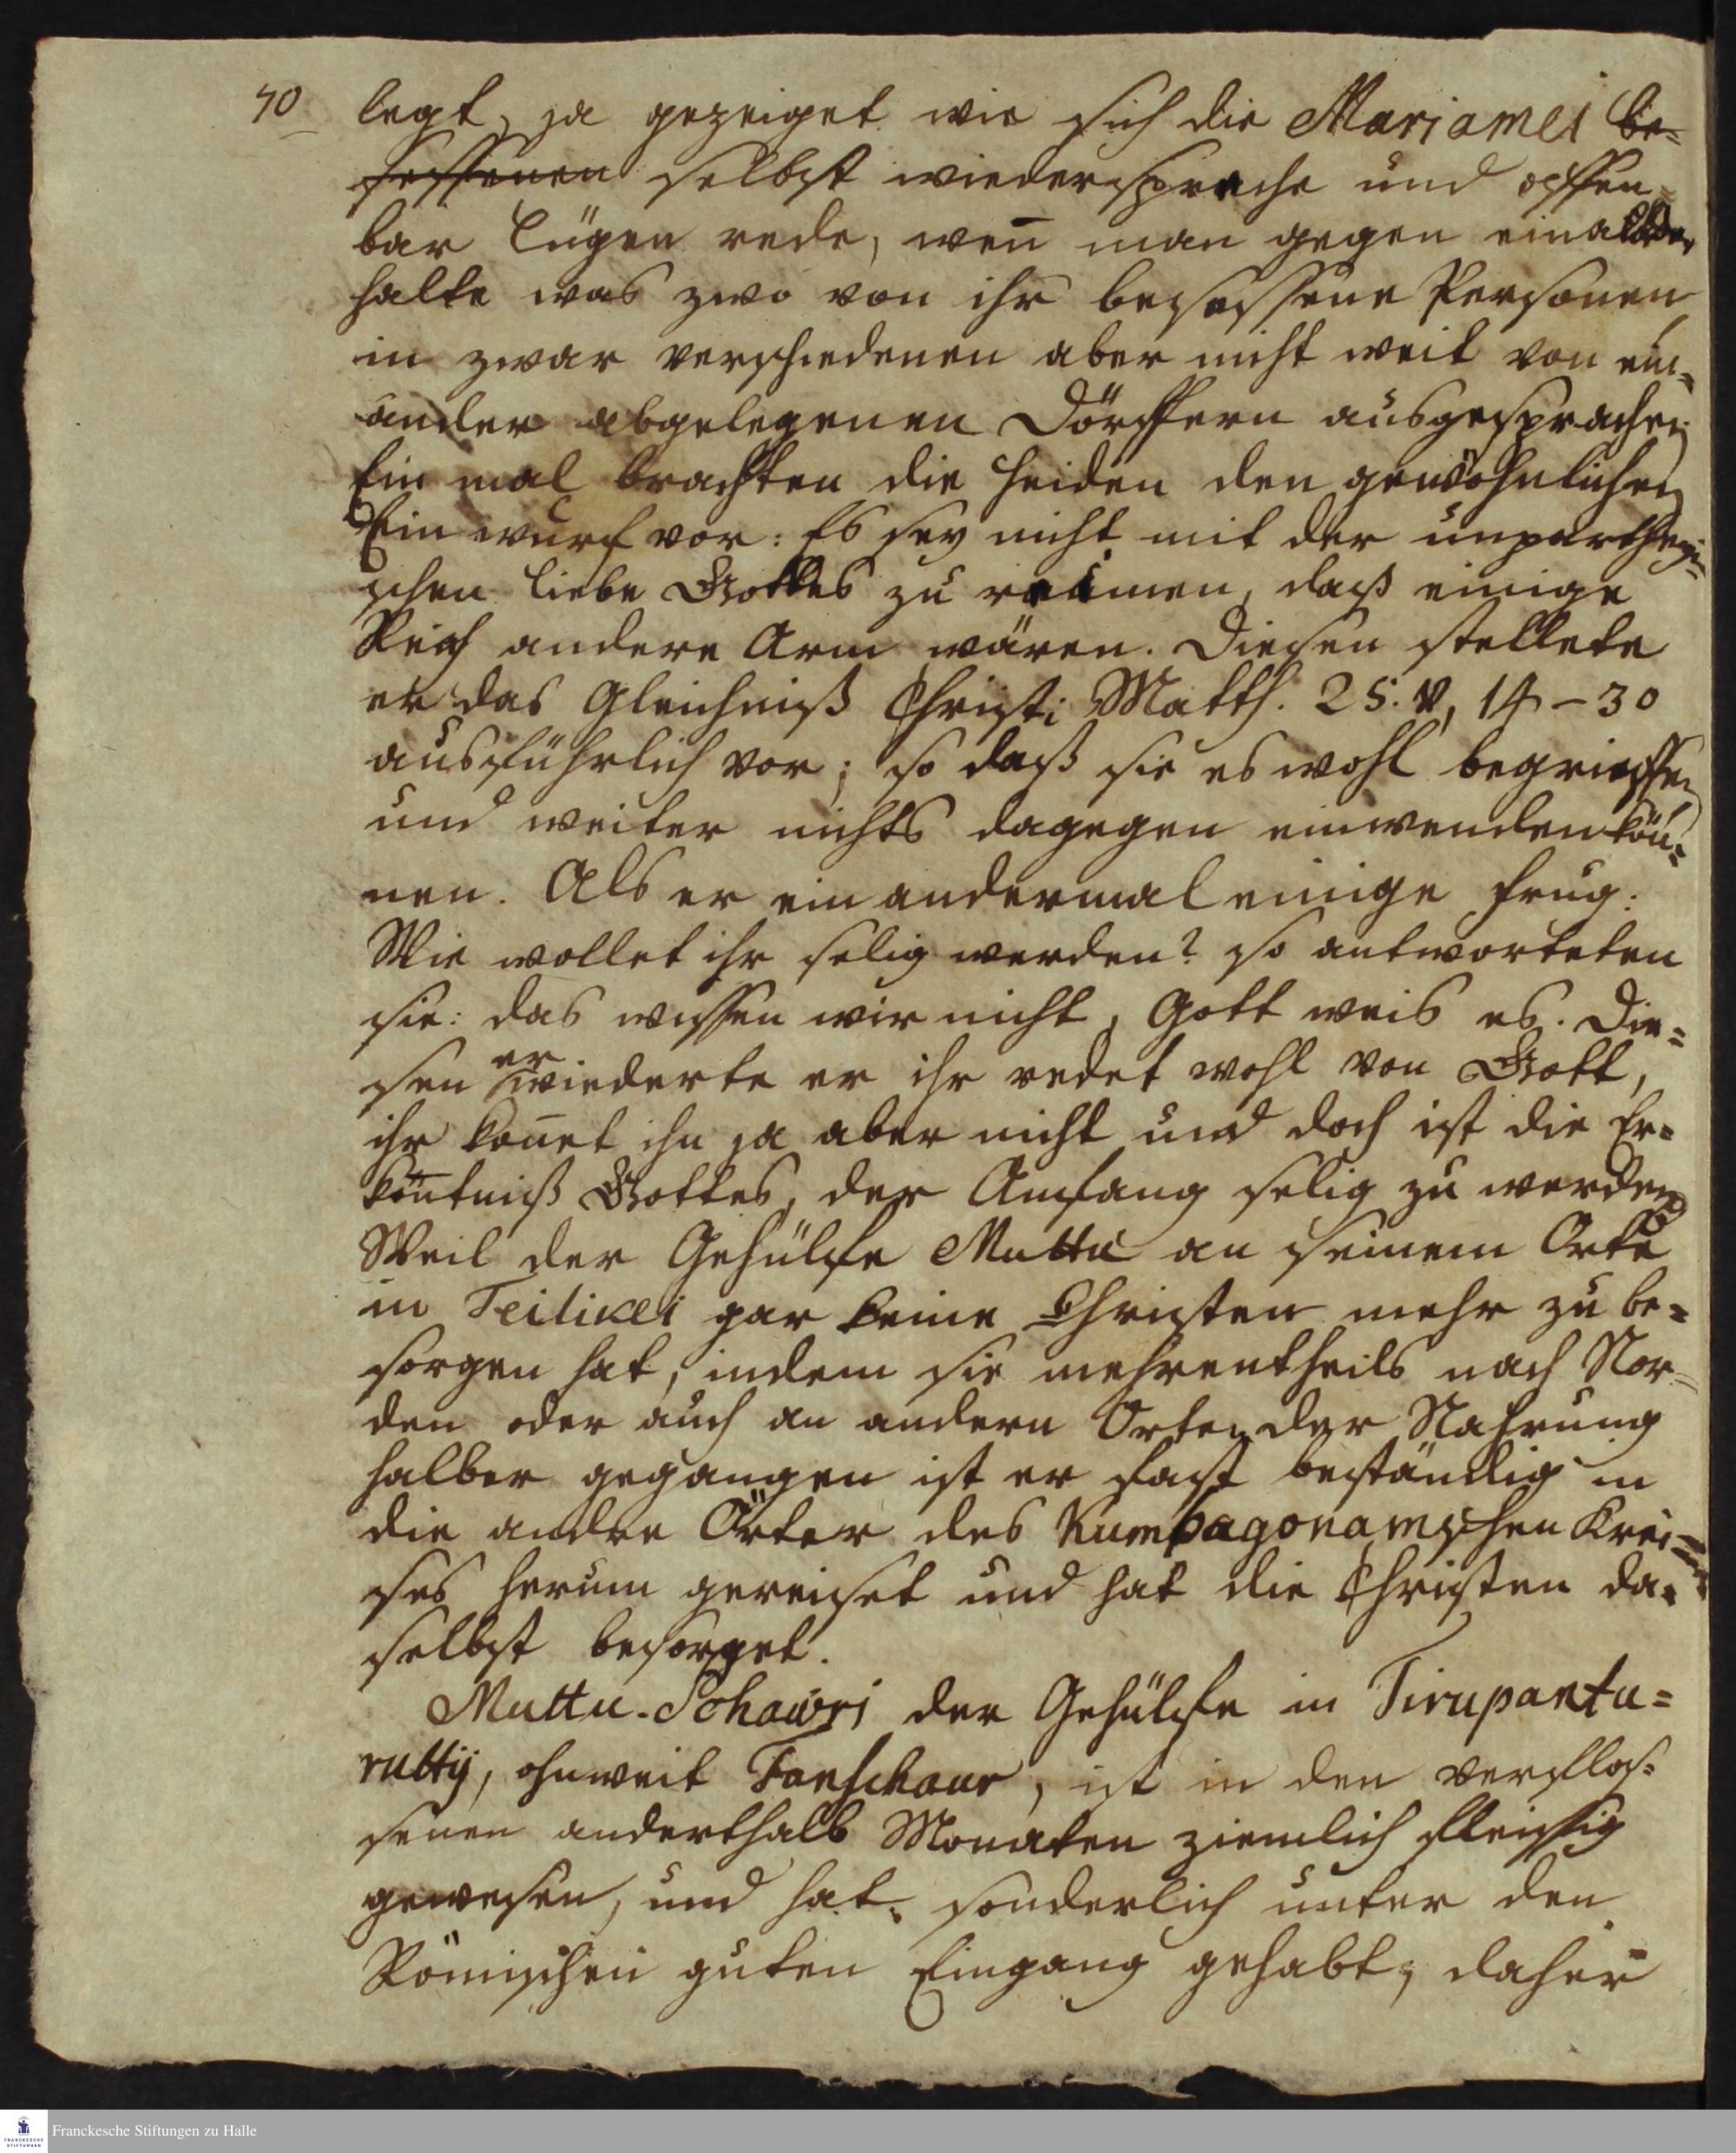 40
legt, ja gezeiget wie sich die Mariamei be-
sessenen selbst wiederspreche und offen-
bar Lügen rede, wen̄ man gegen einander
halte was zwo von ihr besessene Personen
in zwar verschiedenen aber nicht weit von ein-
ander abgelegenen Dörffern ausgesprochen
Ein mal brachten die Heiden den gewöhnlichen
Einwurf vor: Es sey nicht mit der unparthei-
schen Liebe Gottes zu reimen, daß einige
Reich andere Arm wären. Diesen stellete
er das Gleichniß Christi Matth. 25. v. 14-30
ausführlich vor; so daß sie es wohl begrieffen
und weiter nichts dagegen einwenden kön-
nen. Als er ein andermal einige frug:
Wie wollet ihr selig werden? so antworteten
sie: das wissen wir nicht, Gott weis es. Die-
sen erwiederte er ihr redet wohl von Gott,
ihr kennet ihn ja aber nicht und doch ist die Er-
köntniß Gottes, der Anfang selig zu werden
Weil der Gehülfe Muttu an seinem Orte
in Teilikei gar keine Christen mehr zu be-
sorgen hat, indem sie mehrentheils nach Nor-
den oder auch an andern Orten der Nahrung
halber gegangen ist er fast beständig in
die andre Örter des Kumbagonamschen Krei-
ses herum gereiset und hat die Christen da-
selbst besorget.
Muttu-Schawri der Gehülfe in Tirupantu-
rutty, ohnweit Tanschaur, ist in den verflos-
senen anderthalb Monaten ziemlich fleissig
gewesen, und hat sonderlich unter den
Römischen guten Eingang gehabt, daher
Franckesche Stiftungen zu Halle